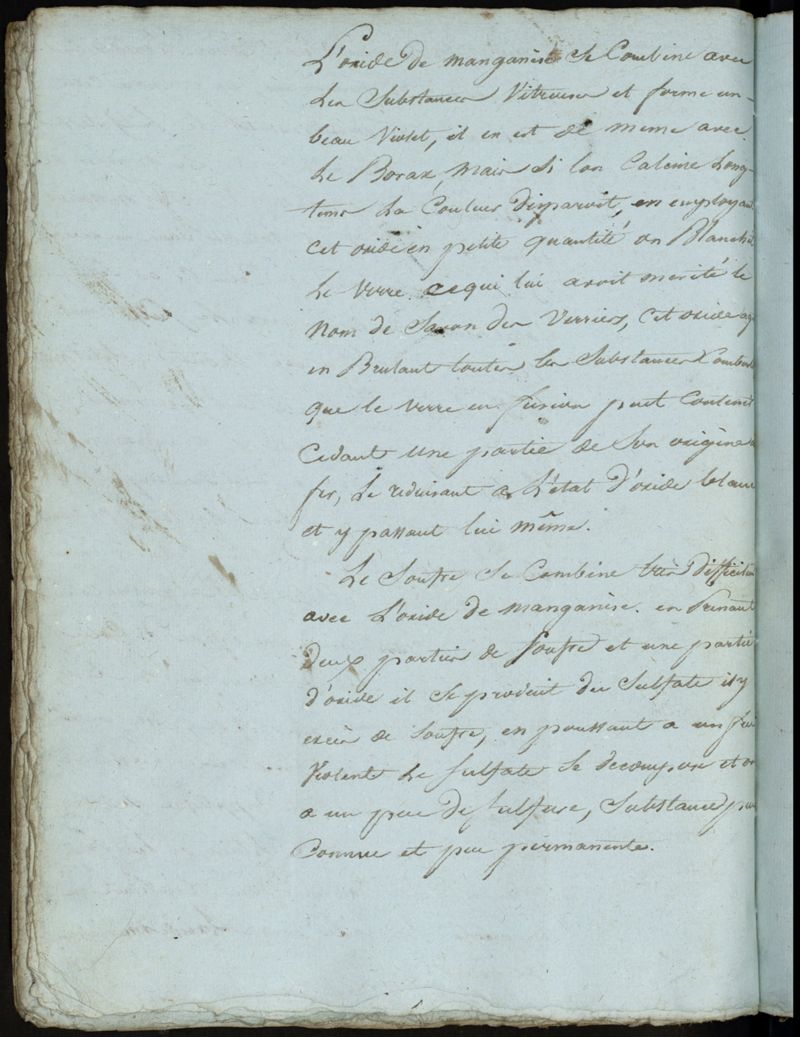 L'oxide de manganèse se Combine avec
les Substances Vitreuses et forme un
beau Violet, il en est de meme avec
le Borax, Mais Si l'on Calcine Long-
tems La Couleur disparoit, en employant
cet oxide en petite quantité on Blanchit
le Verre ce qui lui avoit merité le
Nom de Savon des Verriers, Cet oxide agit
en Brulant toutes les Substances Comb
que le verre en fusion peut Contenir
Cedant une partie de Son oxigène
fer, le reduisant a L'état d'oxide blanc
et y passant lui même.
Le Soufre se Combine très difficilem
avec L'oxide de manganèse. en Prenant
deux parties de Soufre et une partie
d'oxide il se produit du Sulfate il y
excès de Soufre, en poussant a un feu
Violent le Sulfate se decompose et on
a un peu de Sulfure, Substance peu
Connue et peu permanente.